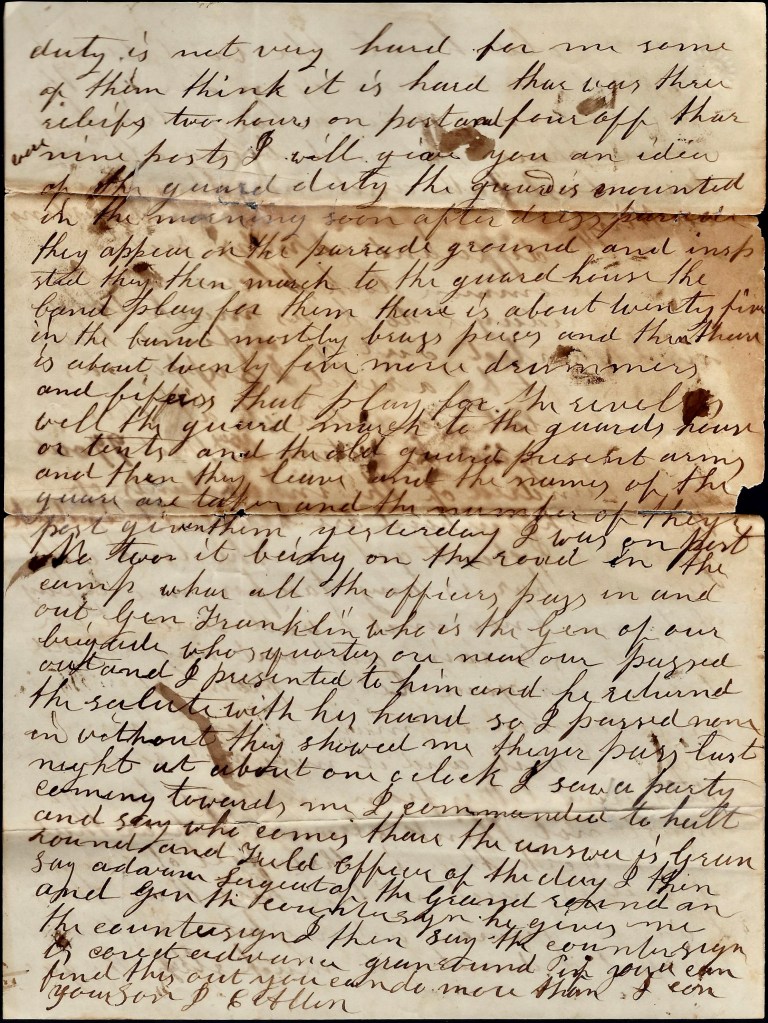 duty is not very hard for me some
of them think it is hard thar was three
releifs two hours on post and four off thar
were nine posts I will give you an idea
of the guard duty the guard is mounted
in the morning soon after dress parade
they appear on the parrade ground and insp
sted they then march to the guard house the
band play for them thare is about twenty five
in the band mostly brass pieces and then thare
is about twenty five more drummers
and fifers that play for the revellis
well the guard march to the guards house
or tents and the old guard present arms
and then they leave and the names of the
guare are taken and the number of they
post given them yesterday I was on post
No two it being on the roud in the
camp whar all the officers pass in and
out Gen Franklin who is the Gen of our
brigade whos quarters are near our passed
out and I presented to him and he returned
the salute with his hand so I passed none
in without they showed me theyer pass last
night at about one oclock I saw a party
coming towards me I commanded to halt
and say who comes thare the answer is Gran
round and Feild Officer of the day I then
say advanc Sergent of the Grand round an
and give the countersign he gives me
the countersign I then say the countersign
is corect advanc granround if you can
find this out you can do more than I con
your son J C Allen